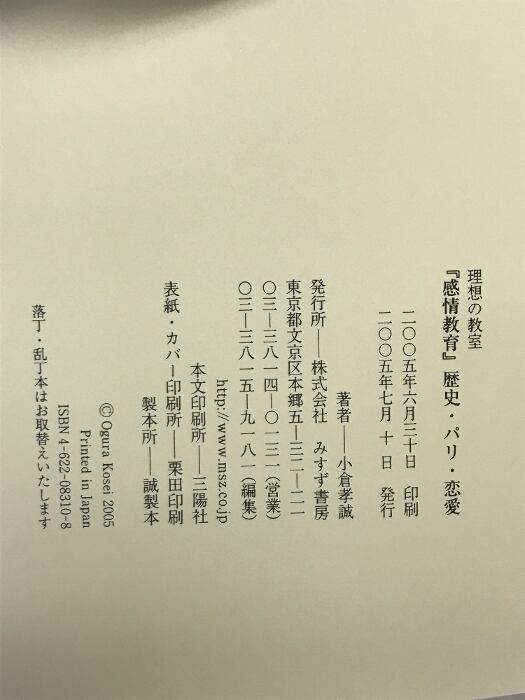 理想の教室
『感情教育』歴史・パリ・恋愛
二〇〇五年六月三十日　印刷
二〇〇五年七月 十 日　発行
著者──小倉孝誠
発行所──株式会社　みすず書房
東京都文京区本郷五─三二─二一
〇三─三八一四─〇一三一(営業)
〇三─三八一五─九一八一(編集)
http://www.msz.co.jp
本文印刷所──三陽社
表紙・カバー印刷所──栗田印刷
製本所──誠製本
© Ogura Kosei 2005
Printed in Japan
ISBN 4-622-08310-8
落丁・乱丁本はお取替えいたします